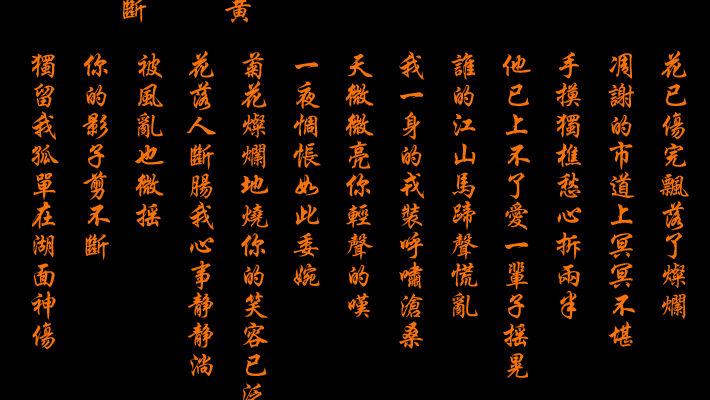 花已傷完飄落了燦爛
凋謝的市道上冥冥不堪
手摸獨樵愁心拆兩半
他已上不了愛一輩子搖晃
誰的江山馬蹄聲慌亂
我一身的戎裝呼嘯滄桑
天微微亮你輕聲的嘆
一夜惆悵如此委婉
菊花燦爛地燒你的笑容已泛
黃
花落人斷腸我心事靜靜淌
被風亂也微搖
斷
你的影子剪不斷
獨留我孤單在湖面神傷